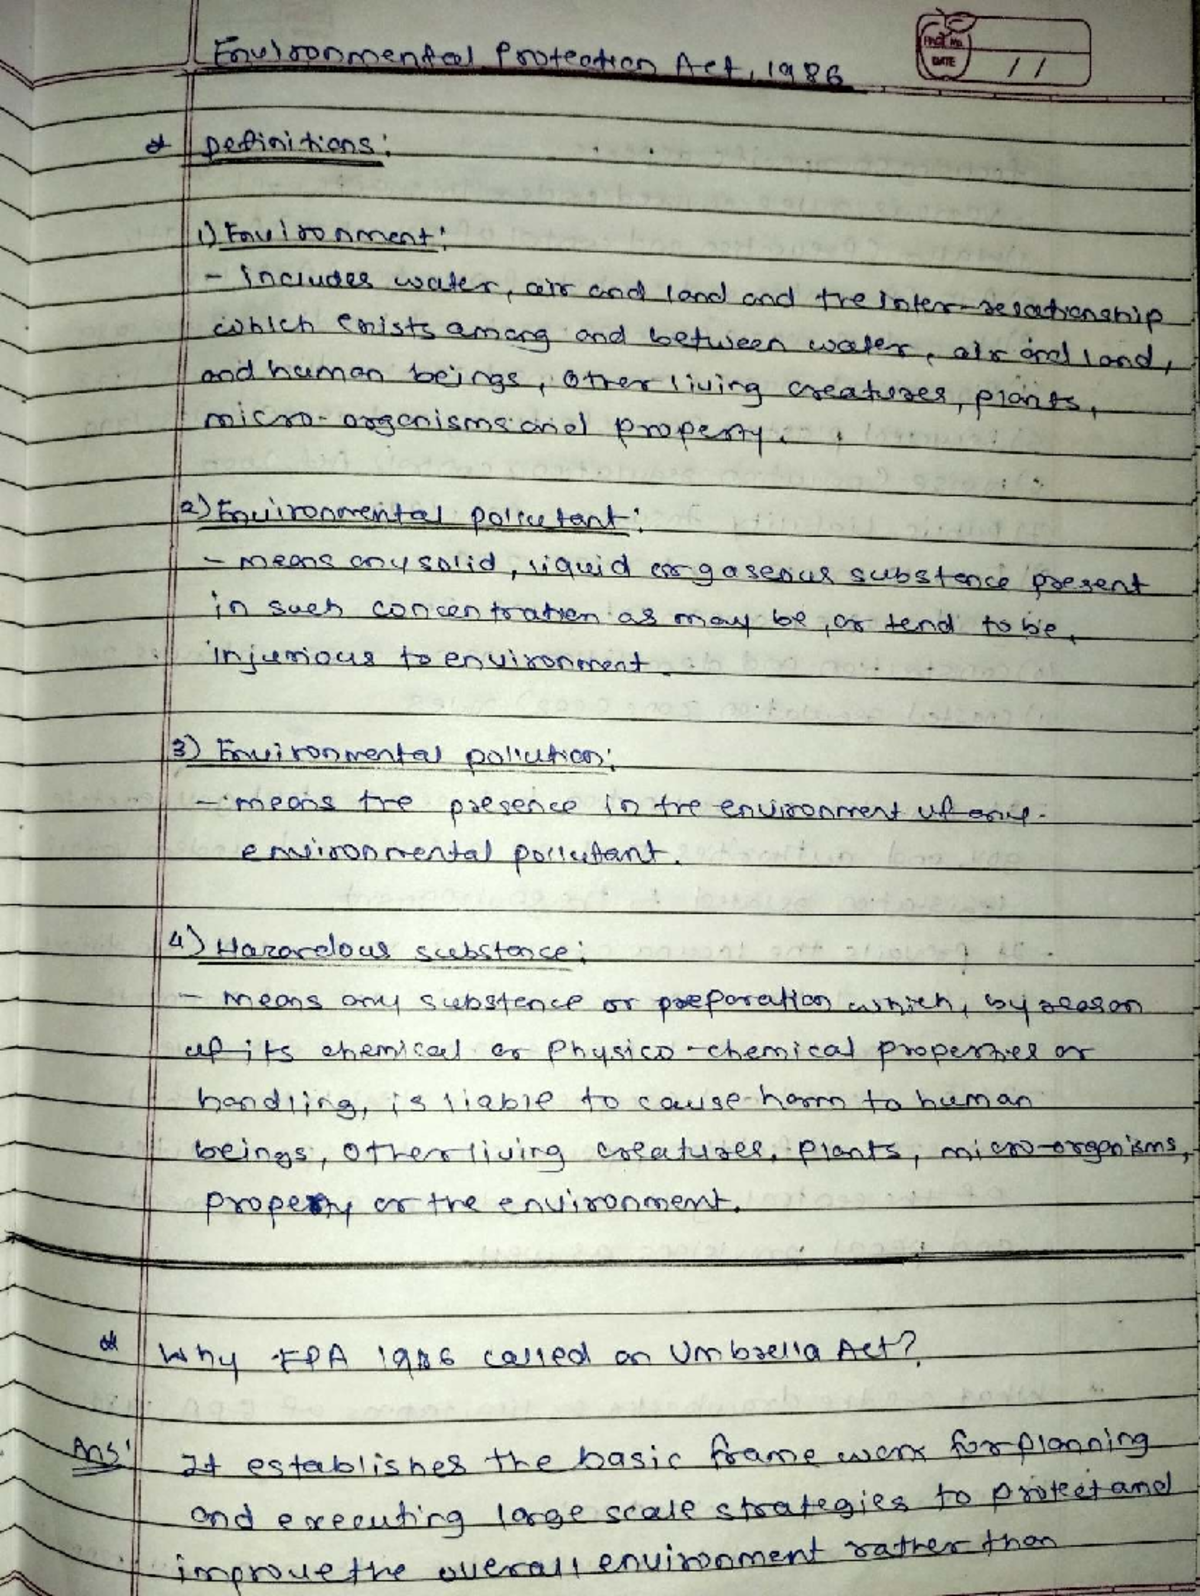 Environmental Protection Act, 1986
PAGE No.
DATE / /
* Definitions:
1) Environment:
- includes water, air and land and the inter-relationship
which exists among and between water, air and land,
and human beings, other living creatures, plants,
micro-organisms and property.
2) Environmental pollutant:
- means any solid, liquid or gaseous substance present
in such concentration as may be, or tend to be,
injurious to environment.
3) Environmental pollution:
- means the presence in the environment of any
environmental pollutant.
4) Hazardous substance:
- means any substance or preparation which, by reason
of its chemical or Physico-chemical properties or
handling, is liable to cause harm to human
beings, other living creatures, plants, micro-organisms,
property or the environment.
* Why EPA 1986 called an Umbrella Act?
Ans: It establishes the basic frame work for planning
and executing large scale strategies to protect and
improve the overall environment rather than